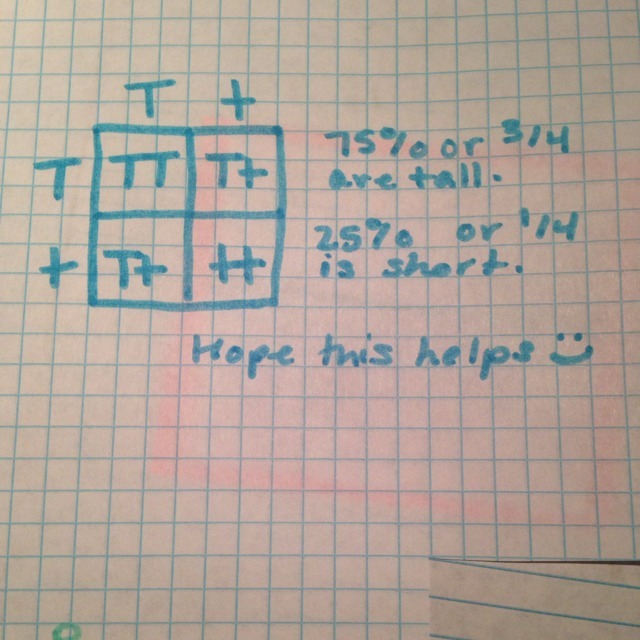 T t
T TT Tt
t Tt tt
75% or 3/4
are tall.
25% or 1/4
is short.
Hope this helps :)